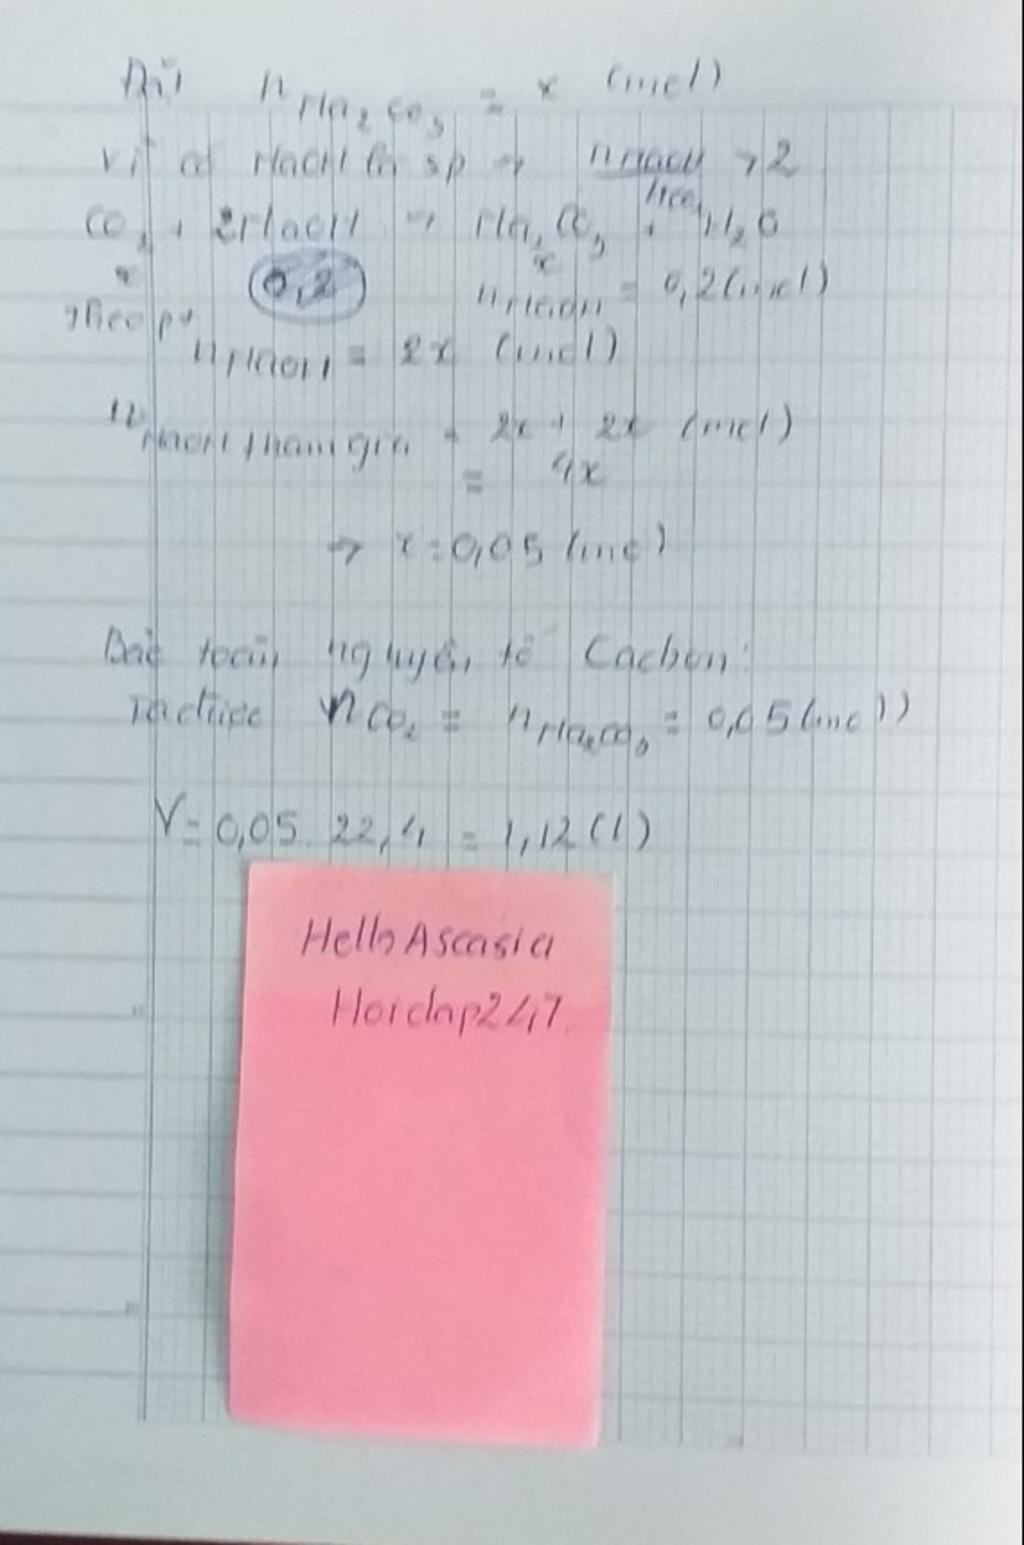 Đặt n Na2CO3 = x (mol)
Vì có NaOH là sp → nNaOH / nCO2 > 2
CO2 + 2NaOH → Na2CO3 + H2O
x 0,2 x nNaOH = 0,2 (mol)
Theo pt
nNaOH = 2x (mol)
nNaOH tham gia = 2x + 2x (mol)
= 4x
→ x = 0,05 (mol)
Bảo toàn nguyên tố Cacbon:
Ta được nCO2 = nNa2CO3 = 0,05 (mol)
V = 0,05 . 22,4 = 1,12 (l)
Hello Ascasia
Hoidap247.